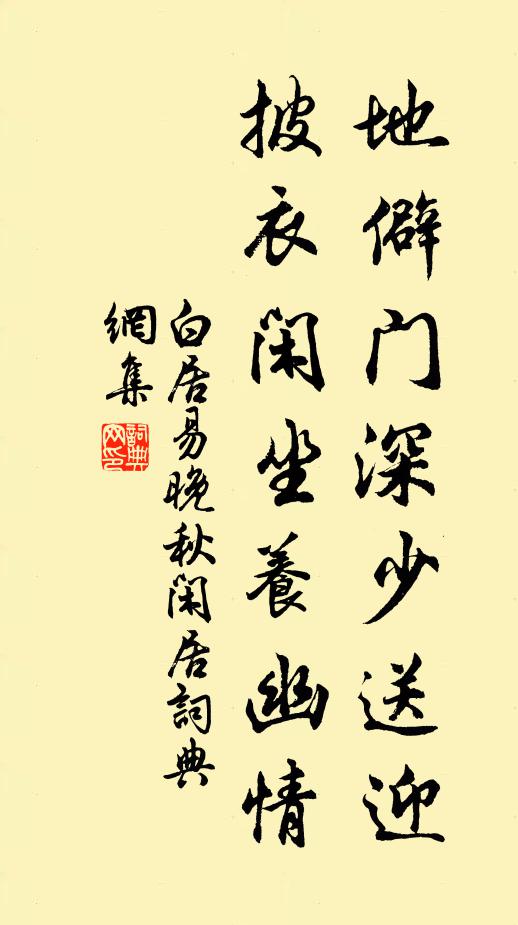 地僻门深少送迎
披衣闲坐養幽情
白居易晚秋闲居詞典
網集
詞典
网印